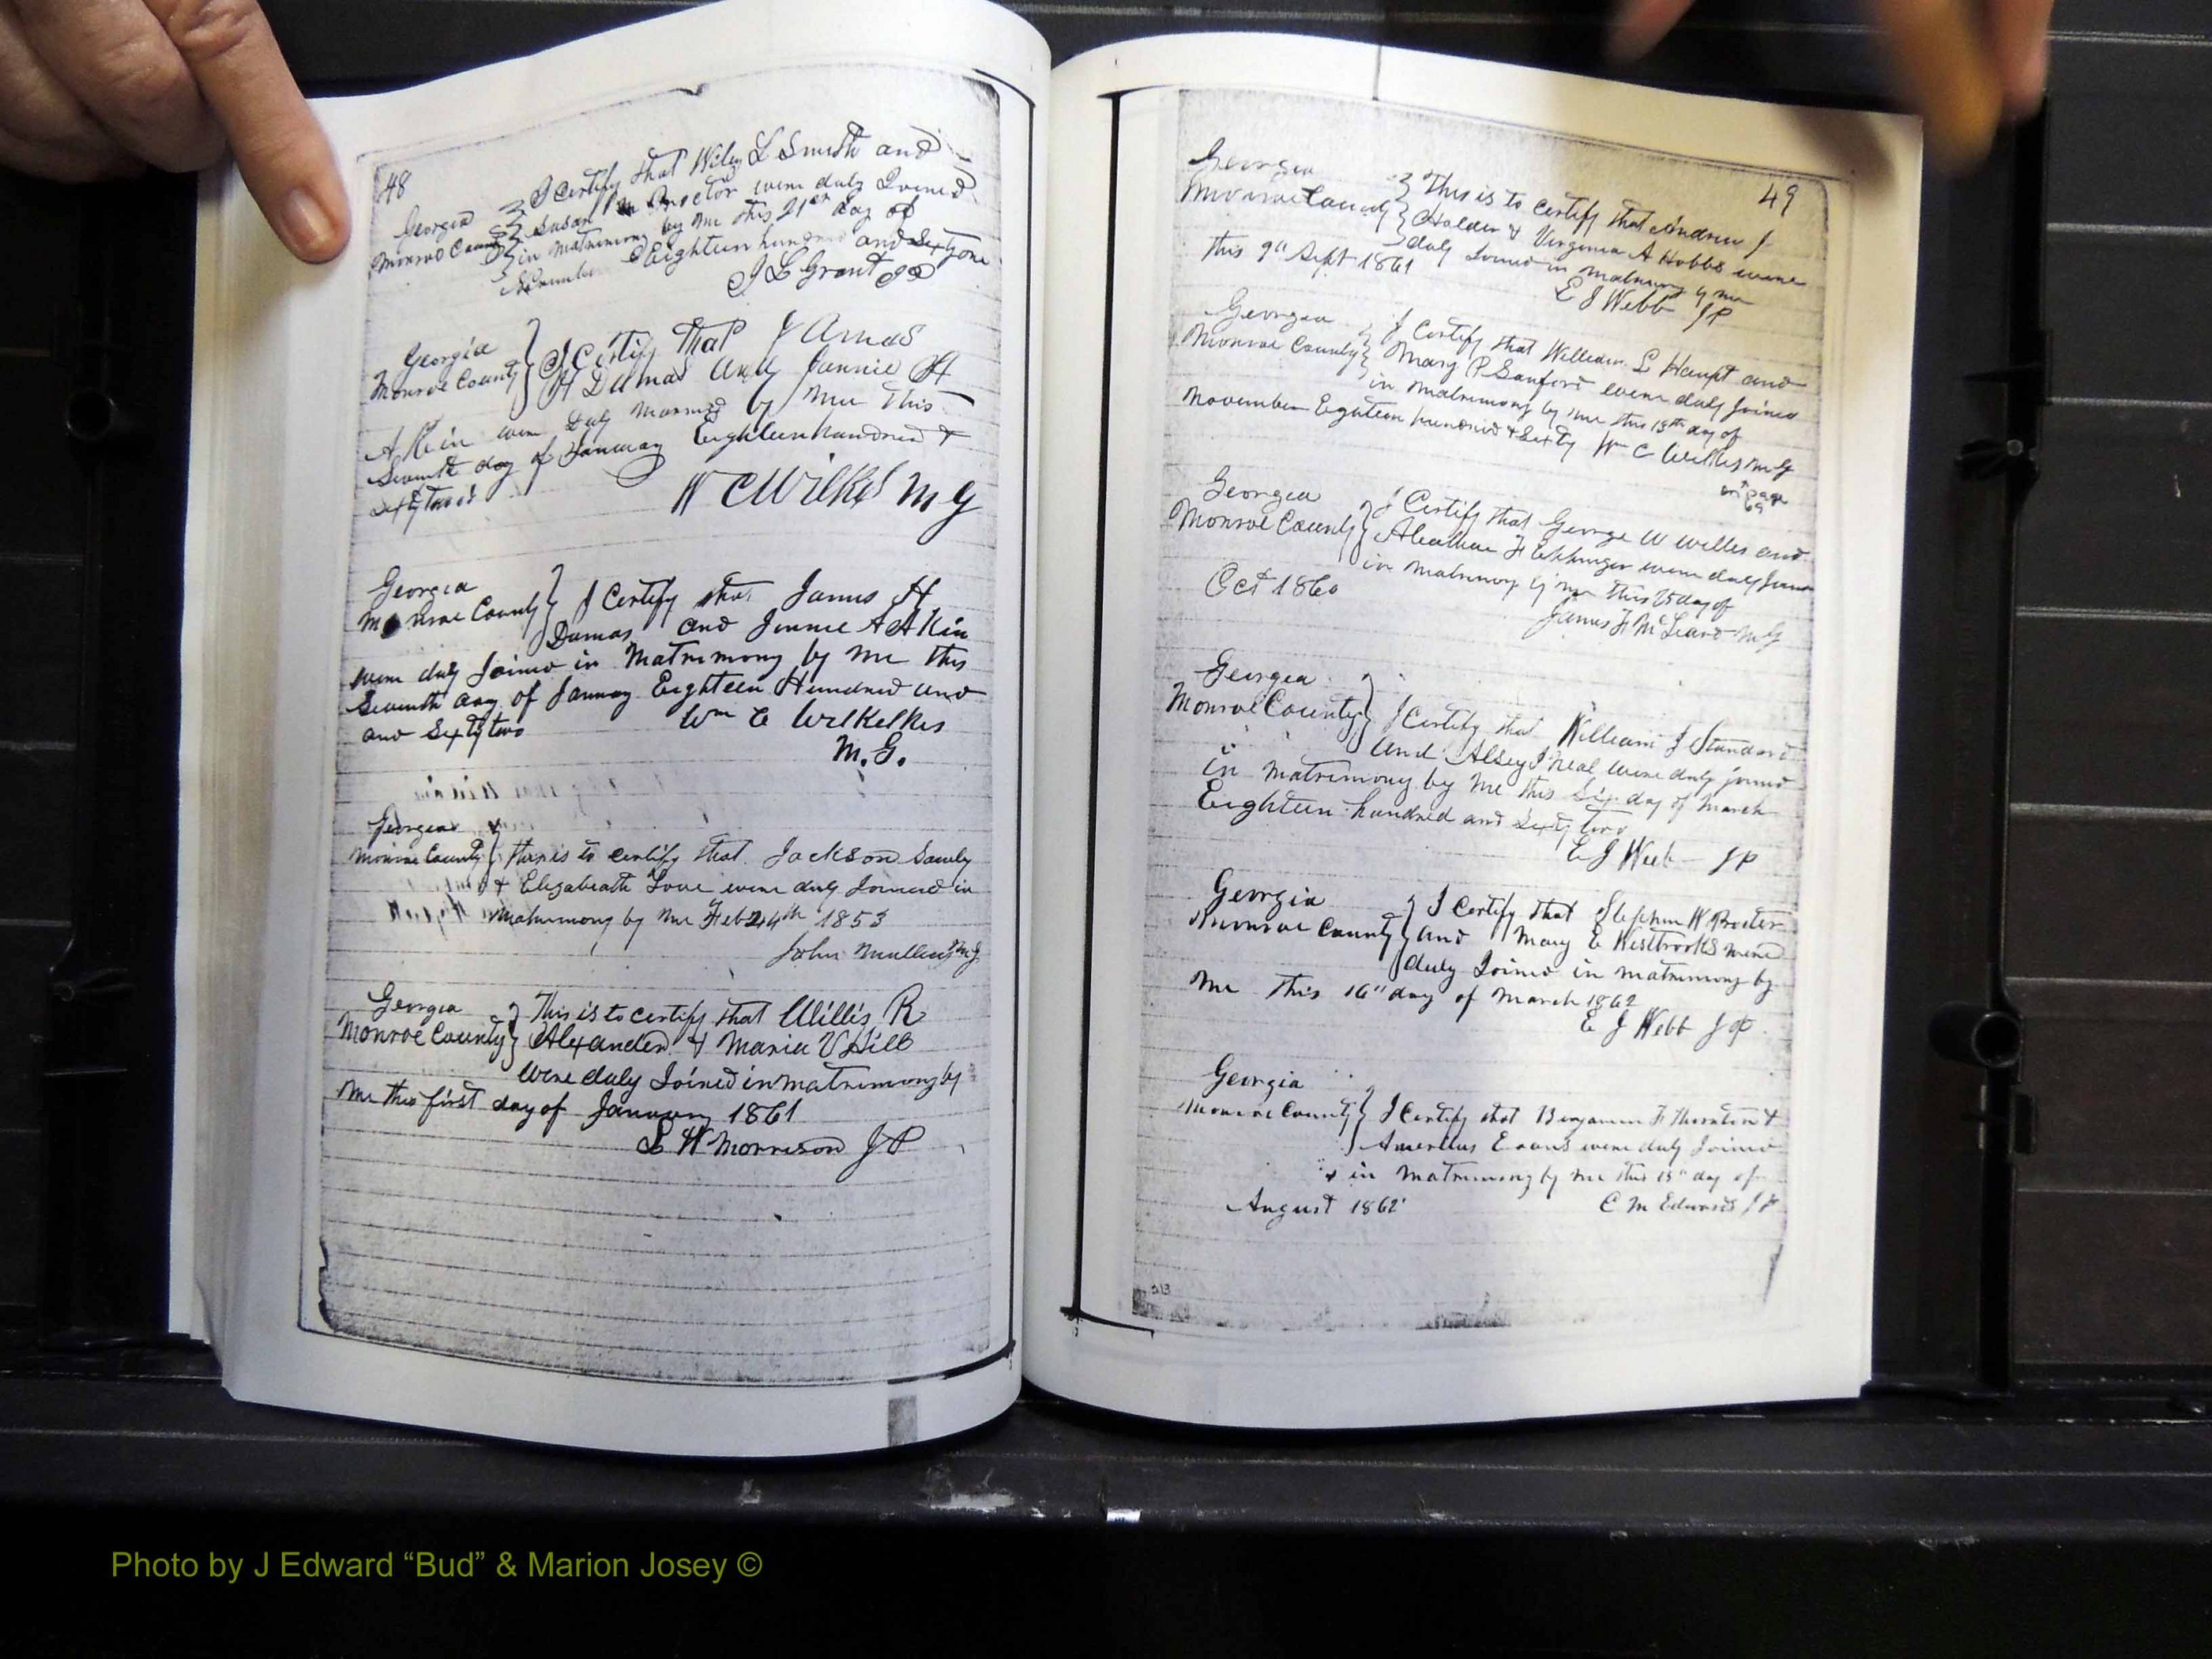 48
I certify that Wiley L Smith and
Georgia Susan Proctor were duly Joined
Monroe County in matrimony by me this 21st day of
November Eighteen hundred and Sixty one
J L Grant JP
Georgia I Certify That James
Monroe County H Dumas And Jannie A
A Kin were Duly Married by Me This
Seventh day of January Eighteen hundred &
Sixty two
W C Wilkes M G
Georgia
Monroe County I Certify that James H
Dumas and Jennie A A Kin
were duly Joined in Matrimony by me this
Seventh day of January Eighteen Hundred and
and Sixty two Wm C Wilkelkes
M.G.
Georgia
Monroe County this is to certify that Jackson
& Elizabeath Love were duly Joined in
matrimony by me Feb 24th 1853
John Mullens M.G.
Georgia This is to certify that Willis R
Monroe County Alexander & Maria V Hill
were duly Joined in matrimony by
me this first day of January 1861
S W Morrison J P
49
Georgia This is to certify that Andrew J
Monroe County Holder & Virginia A Hobbs were
duly Joined in matrimony by me
this 9th Sept 1861
E J Webb JP
Georgia I Certify that William L Haupt and
Monroe County Mary P Sanford were duly Joined
in matrimony by me this 13th day of
November Eighteen hundred & Sixty Wm C Wilkes M G
on page
69
Georgia I Certify that George W Willis and
Monroe County were duly Joined
in matrimony by me this 25 day of
Oct 1860
James F McLeard M G
Georgia
Monroe County I Certify that William J Standard
And Alsey J Neal were duly joined
in matrimony by me this Six day of March
Eighteen hundred and Sixty two
E J Webb JP
Georgia I Certify that Stephen W Procter
Monroe County and Mary E Westbrooks were
duly Joined in matrimony by
me this 16" day of March 1862
E J Webb J P
Georgia
Monroe County I Certify that Benjamin F Thornton &
Evans were duly Joined
in matrimony by me this 15" day of
August 1862 C M Edwards J P
213
Photo by J Edward “Bud” & Marion Josey ©